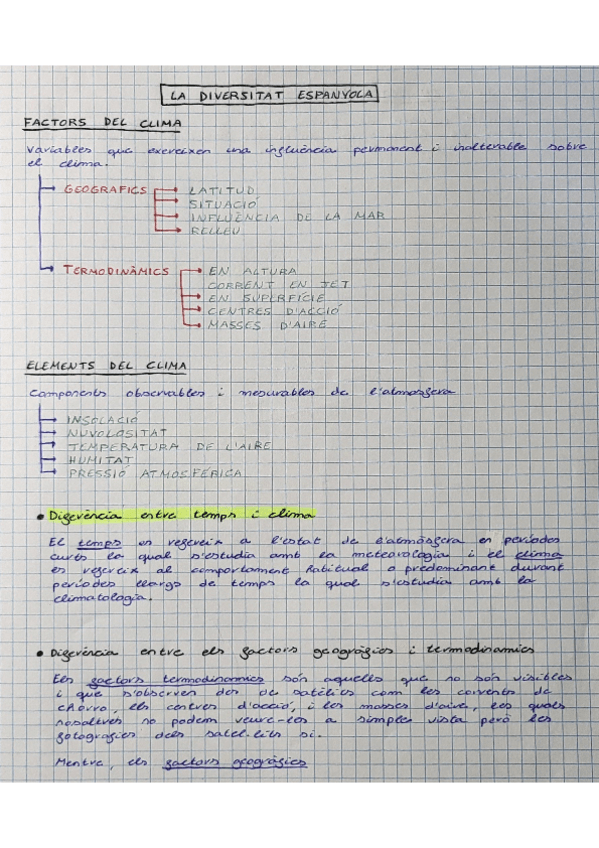 LA DIVERSITAT ESPANYOLA
FACTORS DEL CLIMA
Variables que exerceixen una influència permanent i inalterable sobre
el clima.
GEOGRAFICS
LATITUD
SITUACIÓ
INFLUÈNCIA DE LA MAR
RELLEU
TERMODINÀMICS
EN ALTURA
CORRENT EN JET
EN SUPERFÍCIE
CENTRES D'ACCIÓ
MASSES D'AIRE
ELEMENTS DEL CLIMA
Components observables i mesurables de l'atmosfera
INSOLACIÓ
NUVOLOSITAT
TEMPERATURA DE L'AIRE
HUMITAT
PRESSIÓ ATMOSFÈRICA
• Diferència entre temps i clima
El temps es refereix a l'estat de l'atmòsfera en períodes
curts la qual s'estudia amb la meteorologia i el clima
es refereix al comportament habitual o predominant durant
períodes llargs de temps la qual s'estudia amb la
climatologia.
• Diferència entre els factors geogràfics i termodinamics
Els factors termodinamics són aquells que no són visibles
i que s'observen des de satèlits com les corrents de
chorro, els centres d'acció, i les masses d'aire, les quals
nosaltres no podem veure-les a simple vista però les
fotografies dels satel·lits si.
Mentre, els factors geogràfics